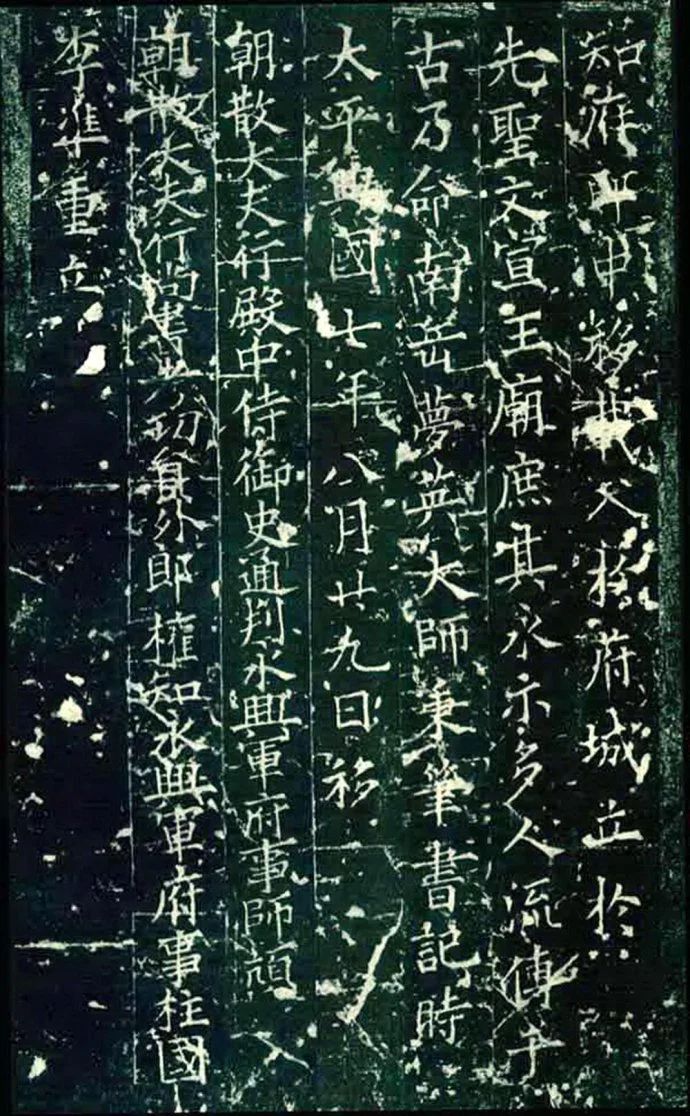 知府郎中移其文於府城立於
先聖文宣王廟庶其永示多人流傳千
古乃命南岳夢英大師秉筆書記時
太平興國七年八月廿九日移
朝散大夫行殿中侍御史通判永興軍府事師頏
朝散大夫行尚書 員外郎權知永興軍府事柱國
李準重立